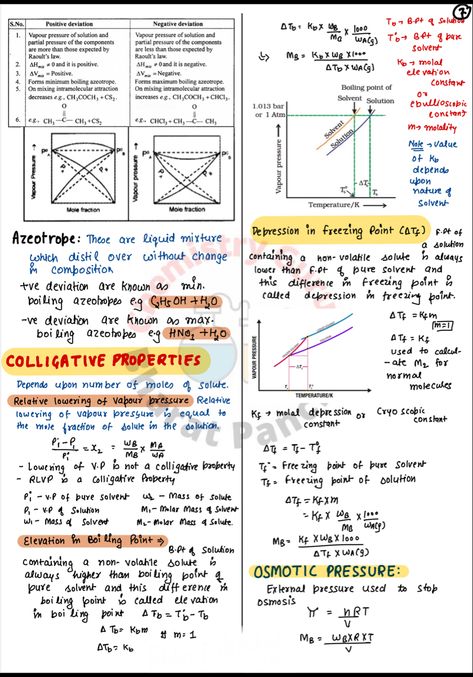 7
S.No. Positive deviation Negative deviation
1. Vapour pressure of solution and partial pressure of the components are more than those expected by Raoult's law.
Vapour pressure of solution and partial pressure of the components are less than those expected by Raoult's law.
2. ΔHmix ≠ 0 and it is positive. ΔHmix ≠ 0 and it is negative.
3. ΔVmix = Positive. ΔVmix = Negative.
4. Forms minimum boiling azeotrope. Forms maximum boiling azeotrope.
5. On mixing intramolecular attraction decreases e.g., CH₃COCH₃ + CS₂.
On mixing intramolecular attraction increases e.g., CH₃COCH₃ + CHCl₃.
6. e.g., CH₃ — C — CH₃ + CS₂
O
e.g., CH₃ — C — CH₃ + CHCl₃
O
Vapour Pressure
Mole fraction
Vapour Pressure
Mole fraction
Azeotrope: These are liquid mixture
which distil over without change
in composition
+ve deviation are known as min.
boiling azeotropes eg C₂H₅OH + H₂O
-ve deviation are known as max.
boiling azeotropes eg HNO₃ + H₂O
COLLIGATIVE PROPERTIES
Depends upon number of moles of solute.
Relative lowering of vapour pressure Relative
lowering of vapour pressure is equal to
the mole fraction of solute in the solution.
P₁° - P₁ / P₁° = x₂ = WB / MB × MA / WA
- Lowering of V.P is not a colligative property
- RLVP is a Colligative Property
P₁° - V.P of pure solvent W₂ - Mass of solute
P₁ - V.P of Solution M₁ - Molar Mass of Solvent
W₁ - Mass of Solvent M₂ - Molar Mass of Solute.
Elevation in Boiling Point ⇒ B.Pt of Solution
containing a non-volatile solute is
always higher than boiling point of
pure solvent and this difference in
boiling point is called elevation
in boiling point ΔTb = Tb - Tb
ΔTb = Kbm if m = 1
ΔTb = Kb
ΔTb = Kb × WB / MB × 1000 / WA(g)
MB = Kb × WB × 1000 / ΔTb × WA(g)
Tb = B.Pt of Solution
Tb° = B.Pt of pure solvent
Kb → molal elevation constant
or
ebullioscopic constant
m → molality
Note → value of Kb depends upon nature of solvent
Boiling point of
Solvent Solution
1.013 bar
or 1 Atm
Solvent
Solution
Vapour pressure
Temperature/K
Depression in freezing Point (ΔTf) F.Pt of
a solution
containing a non-volatile solute is always
lower than F.Pt of pure solvent and
this difference in freezing point is
called depression in freezing point.
VAPOUR PRESSURE
TEMPERATURE/K
ΔTf = Kfm
m=1
ΔTf = Kf
used to calculate M₂ for normal molecules
Kf → molal depression constant or Cryoscopic constant
ΔTf = Tf - Tf°
Tf° = Freezing point of pure solvent
Tf = Freezing point of solution
ΔTf = Kf × m
= Kf × WB / MB × 1000 / WA(g)
MB = Kf × WB × 1000 / ΔTf × WA(g)
OSMOTIC PRESSURE:
External pressure used to stop
osmosis
π = nRT / V
MB = WB × R × T / V